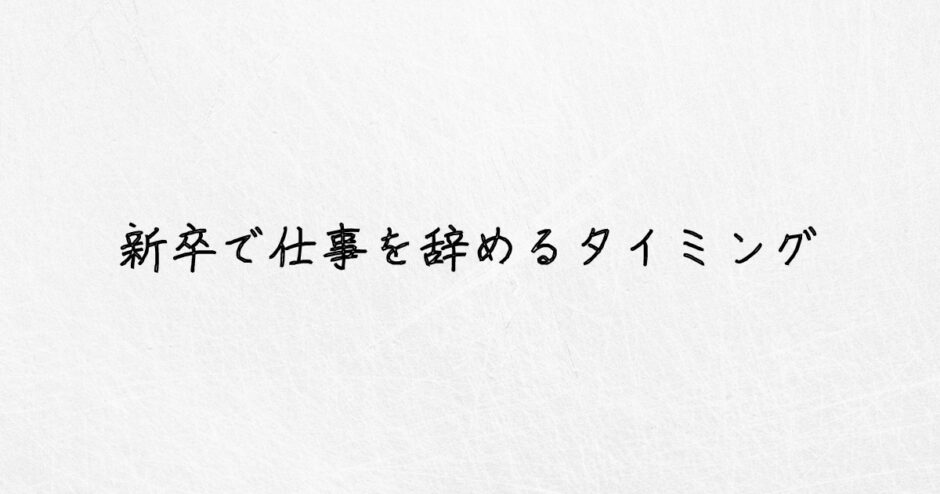 新卒で仕事を辞めるタイミング